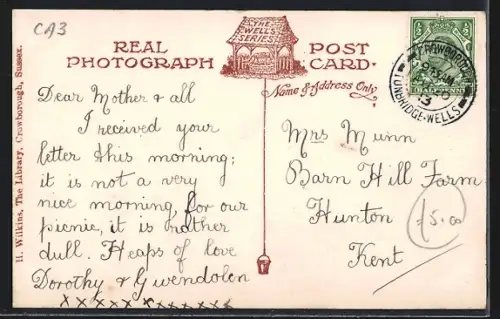 CA3
THE
WELL
SERIES
REAL
PHOTOGRAPH
POST
CARD.
Name & Address Only
½
½
CROWBOROUGH
13
TUNBRIDGE-WELLS
H. Wilkins, The Library, Crowborough, Sussex.
Dear Mother & all
I received your
letter this morning;
it is not a very
nice morning, for our
picnic, it is rather
dull. Heaps of love
Dorothy & Gwendolen
xxxxxxxxxxxxx
Mrs Munn
Barn Hill Farm
Hunton
Kent
£5.00